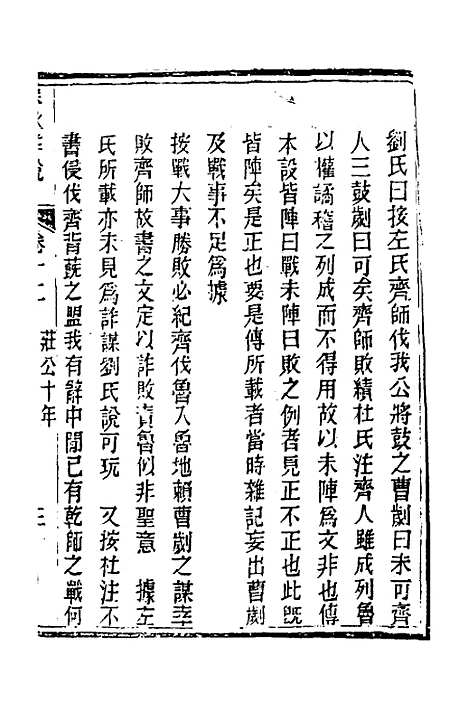 劉氏曰按左氏齊師伐我公將鼓之曹劌曰未可齊
人三鼓劌曰可矣齊師敗績杜氏注齊人雖成列魯
以權譎稽之列成而不得用故以未陣為文非也傳
本設皆陣曰戰未陣曰敗之例者見正不正也此旣
皆陣矣是正也要是傳所載者當時雜記妄出曹劌
及戰事不足為據
按戰大事勝敗必紀齊伐魯入魯地賴曹劌之謀幸
敗齊師故書之文定以詐敗責魯似非聖意 據左
氏所載亦未見為詐謀劉氏說可玩 又按杜注不
書侵伐齊背蔇之盟我有辭中間已有乾師之戰何
莊公十年